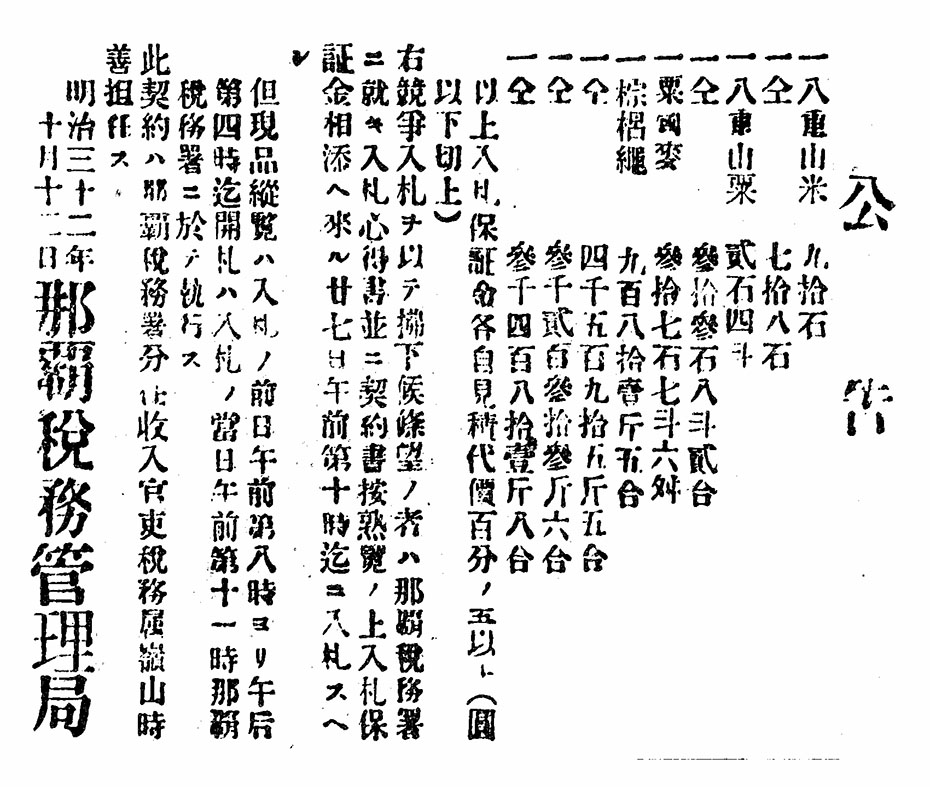 公告
一八重山米　九拾石
一仝　七拾八石
一八重山粟　貳石四斗
一仝　參拾參石八斗貳合
粟國麥　參拾七石七斗六舛
一棕梠繩　九百八拾壹斤五合
一仝　四千五百九拾五斤五合
一仝　參千貳百參拾參斤六合
一仝　參千四百八拾壹斤八合
以上入札保証金各自見積代價百分ノ五以上（圓
以下切上）
右競爭入札ヲ以テ拂下候條望ノ者ハ那覇稅務署
ニ就キ入札心得書並ニ契約書按熟覽ノ上入札保
証金相添ヘ來ル廿七日午前第十時迄ニ入札スヘ
シ
但現品縱覽ハ入札ノ前日午前第八時ヨリ午后
第四時迄開札ハ入札ノ當日午前第十一時那覇
稅務署ニ於テ執行ス
此契約ハ那覇稅務署分任收入官吏稅務属嶺山時
善担任ス
明治三十二年
十月十二日
那覇稅務管理局